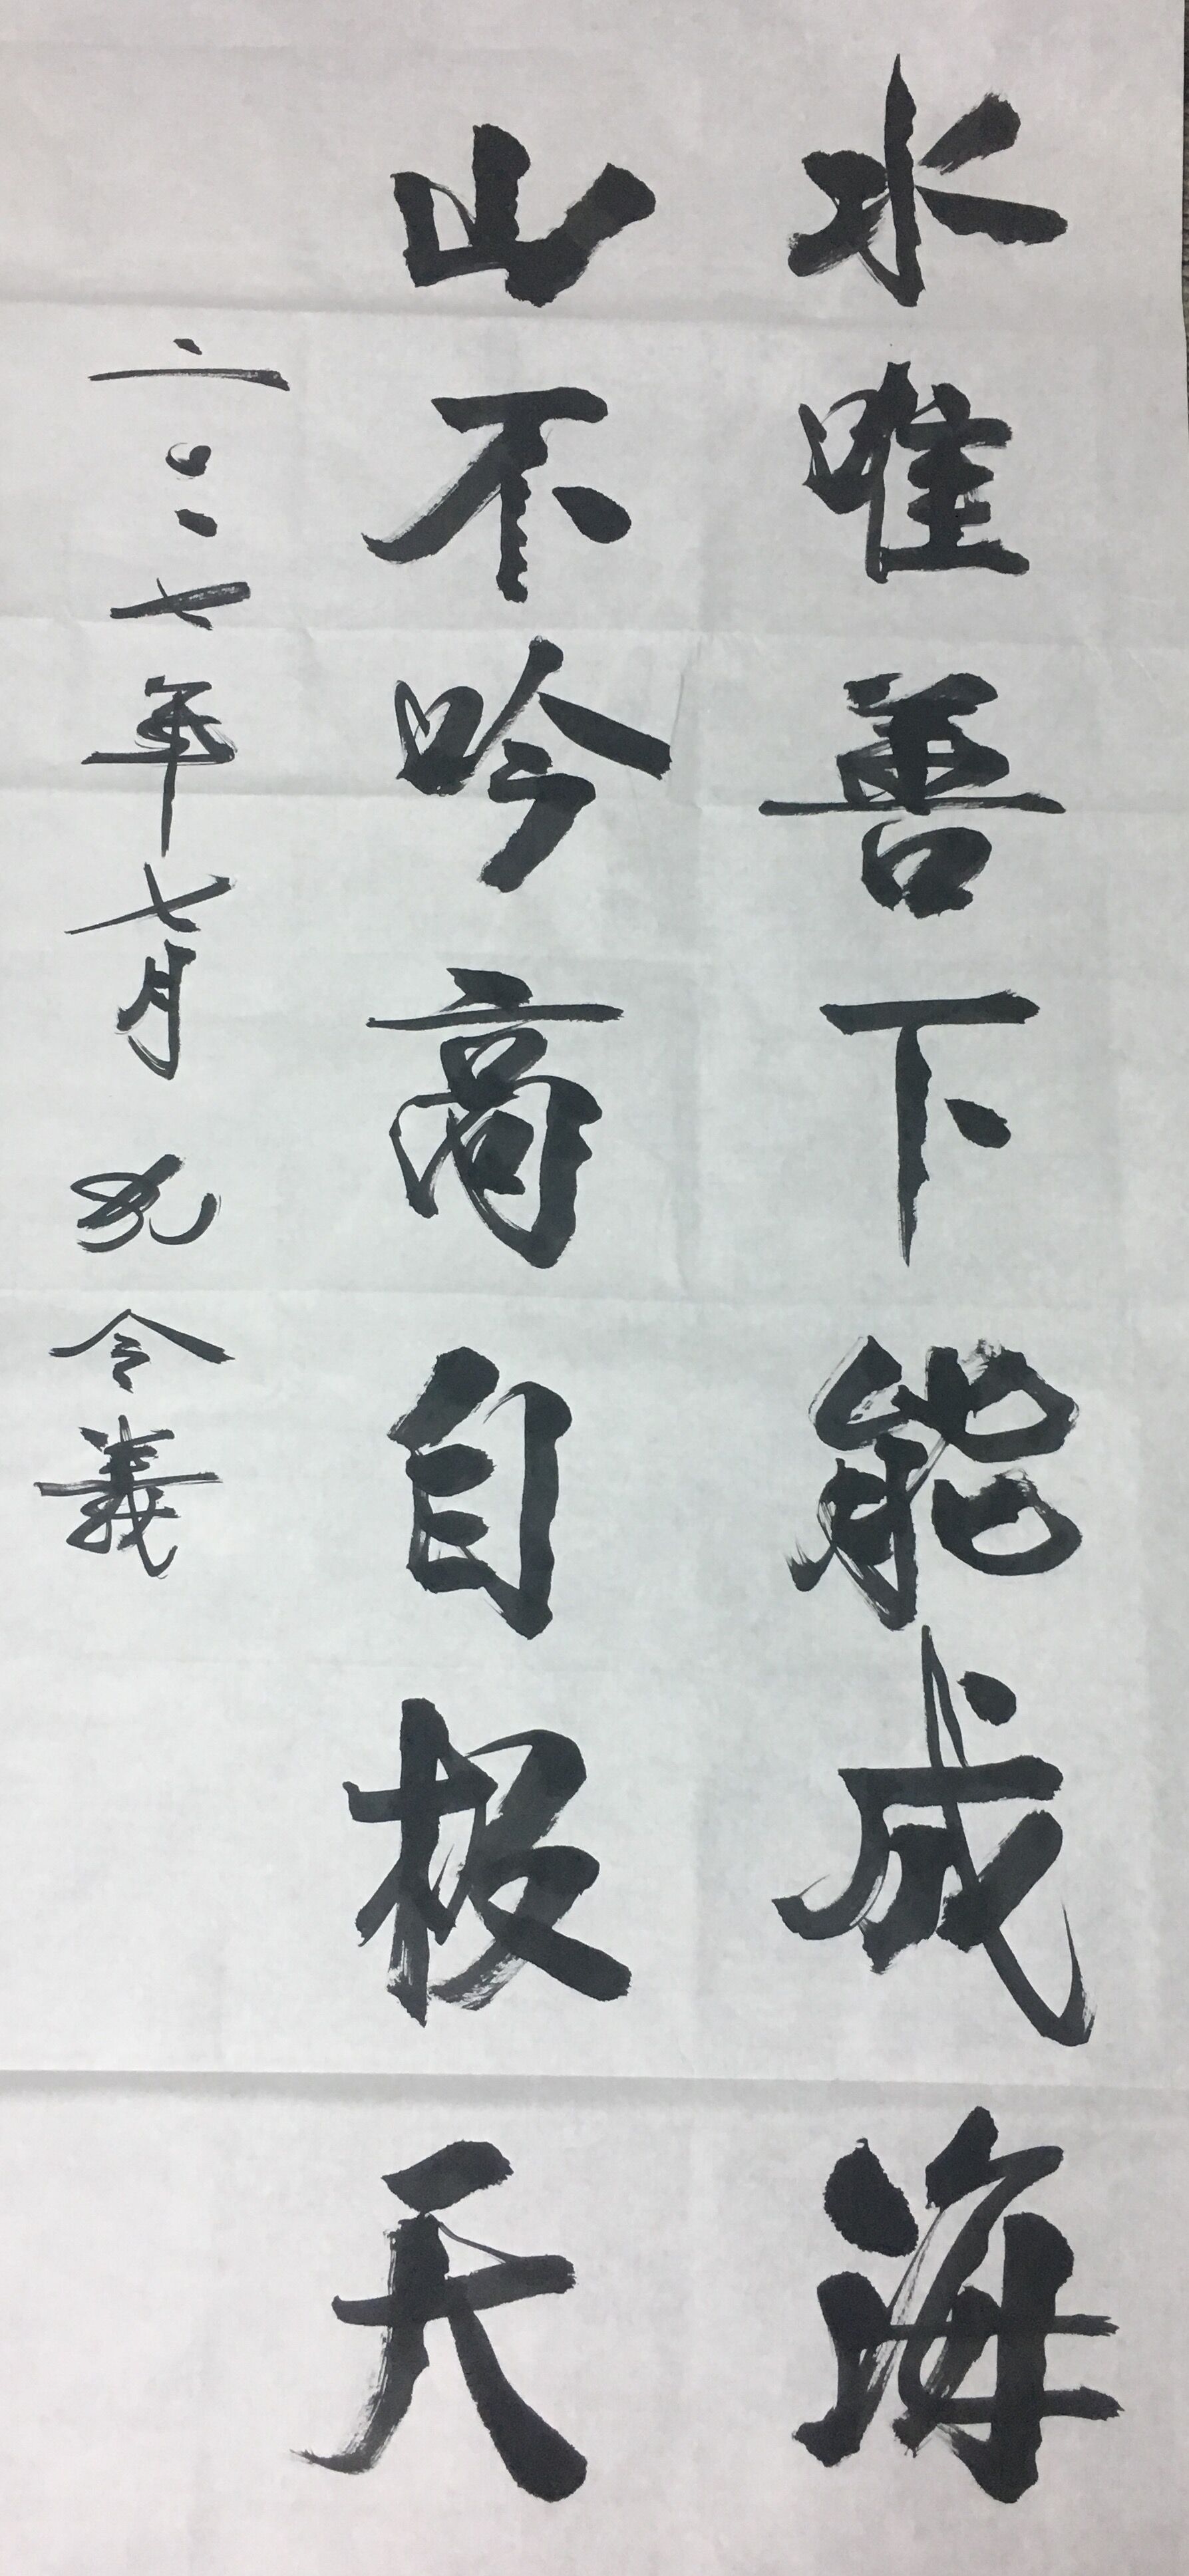 水唯善下能成海
山不吟高自极天
二〇一七年七月 令義